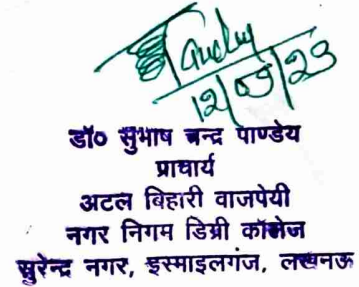 12/09/23
डॉ० सुभाष चन्द्र पाण्डेय
प्राचार्य
अटल बिहारी वाजपेयी
नगर निगम डिग्री कॉलेज
सुरेन्द्र नगर, इस्माइलगंज, लखनऊ